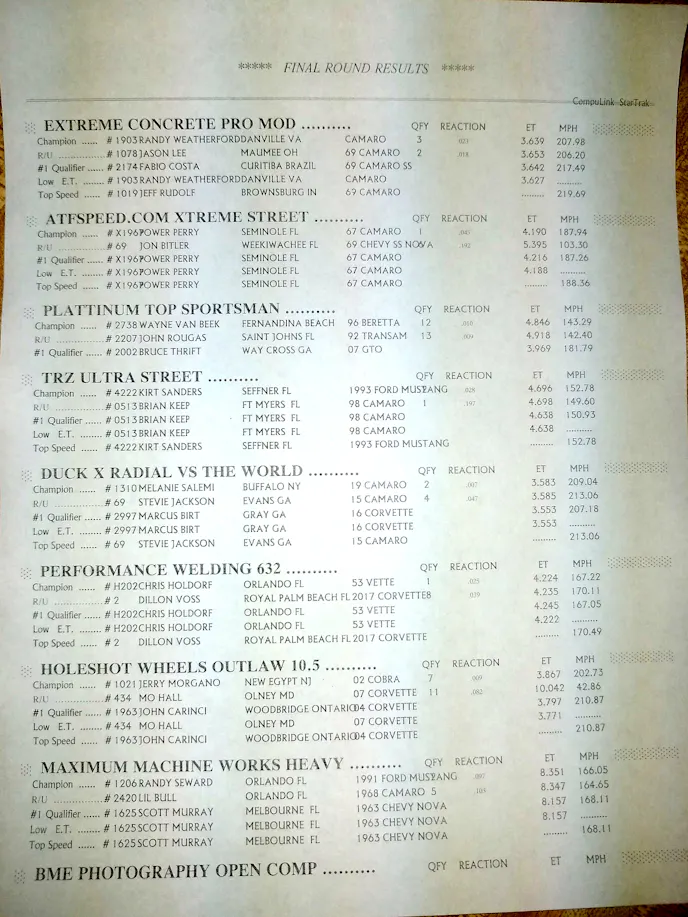 ***** FINAL ROUND RESULTS *****
CompuLink StarTrak
EXTREME CONCRETE PRO MOD .......... QFY REACTION ET MPH
Champion ...... # 1903 RANDY WEATHERFORD DANVILLE VA CAMARO 3 .023 3.639 207.98
R/U ................ # 1078 JASON LEE MAUMEE OH 69 CAMARO 2 .018 3.653 206.20
#1 Qualifier ...... # 2174 FABIO COSTA CURITIBA BRAZIL 69 CAMARO SS 3.642 217.49
Low E.T. ........ # 1903 RANDY WEATHERFORD DANVILLE VA CAMARO 3.627 ..........
Top Speed ...... # 1019 JEFF RUDOLF BROWNSBURG IN 69 CAMARO ......... 219.69
ATFSPEED.COM XTREME STREET .......... QFY REACTION ET MPH
Champion ...... # X196 POWER PERRY SEMINOLE FL 67 CAMARO 1 4.190 187.94
R/U ................ # 69 JON BITLER WEEKIWACHEE FL 69 CHEVY SS NOVA .192 5.395 103.30
#1 Qualifier ...... # X196 POWER PERRY SEMINOLE FL 67 CAMARO 4.216 187.26
Low E.T. ........ # X196 POWER PERRY SEMINOLE FL 67 CAMARO 4.188 ..........
Top Speed ...... # X196 POWER PERRY SEMINOLE FL 67 CAMARO ......... 188.36
PLATTINUM TOP SPORTSMAN .......... QFY REACTION ET MPH
Champion ...... # 2738 WAYNE VAN BEEK FERNANDINA BEACH 96 BERETTA 12 .010 4.846 143.29
R/U ................ # 2207 JOHN ROUGAS SAINT JOHNS FL 92 TRANSAM 13 .009 4.918 142.40
#1 Qualifier ...... # 2002 BRUCE THRIFT WAY CROSS GA 07 GTO 3.969 181.79
TRZ ULTRA STREET .......... QFY REACTION ET MPH
Champion ...... # 4222 KIRT SANDERS SEFFNER FL 1993 FORD MUSTANG .028 4.696 152.78
R/U ................ # 0513 BRIAN KEEP FT MYERS FL 98 CAMARO 1 .197 4.698 149.60
#1 Qualifier ...... # 0513 BRIAN KEEP FT MYERS FL 98 CAMARO 4.638 150.93
Low E.T. ........ # 0513 BRIAN KEEP FT MYERS FL 98 CAMARO 4.638 ..........
Top Speed ...... # 4222 KIRT SANDERS SEFFNER FL 1993 FORD MUSTANG ......... 152.78
DUCK X RADIAL VS THE WORLD .......... QFY REACTION ET MPH
Champion ...... # 1310 MELANIE SALEMI BUFFALO NY 19 CAMARO 2 .007 3.583 209.04
R/U ................ # 69 STEVIE JACKSON EVANS GA 15 CAMARO 4 .047 3.585 213.06
#1 Qualifier ...... # 2997 MARCUS BIRT GRAY GA 16 CORVETTE 3.553 207.18
Low E.T. ........ # 2997 MARCUS BIRT GRAY GA 16 CORVETTE 3.553 ..........
Top Speed ...... # 69 STEVIE JACKSON EVANS GA 15 CAMARO ......... 213.06
PERFORMANCE WELDING 632 .......... QFY REACTION ET MPH
Champion ...... # H202 CHRIS HOLDORF ORLANDO FL 53 VETTE 1 .025 4.224 167.22
R/U ................ # 2 DILLON VOSS ROYAL PALM BEACH FL 2017 CORVETTE 8 .039 4.235 170.11
#1 Qualifier ...... # H202 CHRIS HOLDORF ORLANDO FL 53 VETTE 4.245 167.05
Low E.T. ........ # H202 CHRIS HOLDORF ORLANDO FL 53 VETTE 4.222 ..........
Top Speed ...... # 2 DILLON VOSS ROYAL PALM BEACH FL 2017 CORVETTE ......... 170.49
HOLESHOT WHEELS OUTLAW 10.5 .......... QFY REACTION ET MPH
Champion ...... # 1021 JERRY MORGANO NEW EGYPT NJ 02 COBRA 7 .009 3.867 202.73
R/U ................ # 434 MO HALL OLNEY MD 07 CORVETTE 11 .082 10.042 42.86
#1 Qualifier ...... # 1963 JOHN CARINCI WOODBRIDGE ONTARIO 04 CORVETTE 3.797 210.87
Low E.T. ........ # 434 MO HALL OLNEY MD 07 CORVETTE 3.771 ..........
Top Speed ...... # 1963 JOHN CARINCI WOODBRIDGE ONTARIO 04 CORVETTE ......... 210.87
MAXIMUM MACHINE WORKS HEAVY .......... QFY REACTION ET MPH
Champion ...... # 1206 RANDY SEWARD ORLANDO FL 1991 FORD MUSTANG 8.351 166.05
R/U ................ # 2420 LIL BULL ORLANDO FL 1968 CAMARO 5 8.347 164.65
#1 Qualifier ...... # 1625 SCOTT MURRAY MELBOURNE FL 1963 CHEVY NOVA 8.157 168.11
Low E.T. ........ # 1625 SCOTT MURRAY MELBOURNE FL 1963 CHEVY NOVA 8.157 ..........
Top Speed ...... # 1625 SCOTT MURRAY MELBOURNE FL 1963 CHEVY NOVA ......... 168.11
BME PHOTOGRAPHY OPEN COMP .......... QFY REACTION ET MPH